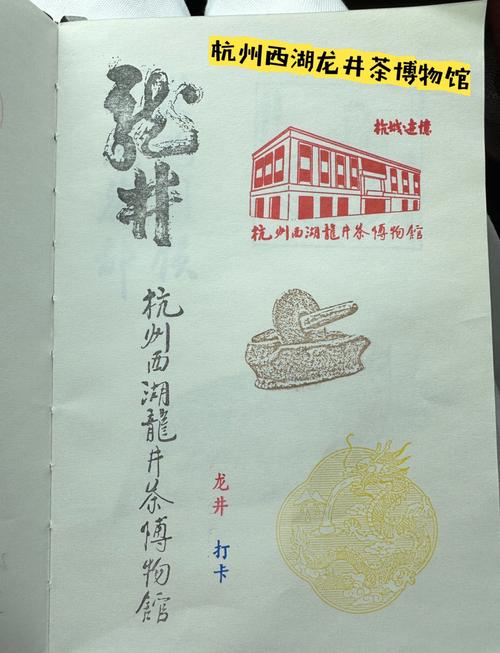 杭州西湖龙井茶博物馆
龙井
杭城追憶
杭州西湖龍井茶博物館
杭州西湖龍井茶博物館
龙井
打卡